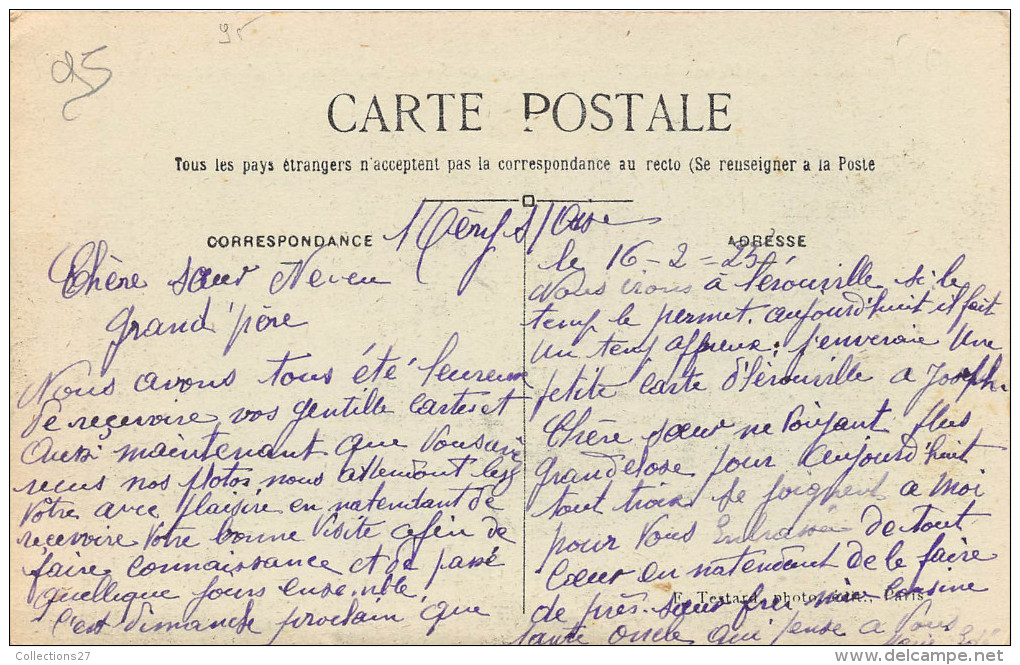 95
95
CARTE POSTALE
Tous les pays étrangers n'acceptent pas la correspondance au recto (Se renseigner a la Poste
CORRESPONDANCE
Méry s/Oise
ADRESSE
le 16-2=25
Chère sœur Neveu
grand'père
Nous avons tous été heureux
de reçevoire vos gentille cartes et
Aussi maintenant que vous avé
recus nos Photos nous attendont les
vôtre avec plaisire en natendant de
recevoire votre bonne visite afin de
faire connaissance et de passé
quellque jours ensemble
c'est dimanche prochain que
Nous irons à hérouville si le
temp le permet. aujourd'huit il fait
un temp affreux; j'enveraie une
petite carte d'hérouville a Joseph.
Chère sœur ne voiyant plus
grandechose pour aujourd'huit
tout trois se joignent a moi
pour vous Enbrassé de tout
Cœur en natendant de le faire
de près. sœur frei cousine
F. Testard, photo-édit., Paris
oncle qui pense a vous
Collections27
www.delcampe.net